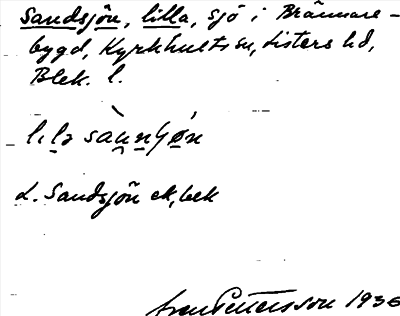 Sandsjön, lilla, sjö i Brännare-
bygd, Kyrkhults sn, Listers hd,
Blek. l.
lılə sàu̯nɧǿn
d. Sandsjön ek, bek
Sven Pettersson 1936